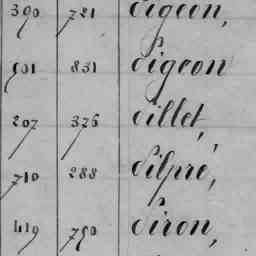 390 721 Pigeon,
601 831 Pigeon
207 376 Pillet,
710 288 Pilpré,
419 750 Piron,